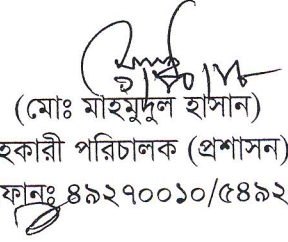 (মোঃ মাহমুদুল হাসান)
হকারী পরিচালক (প্রশাসন)
ফোনঃ ৪৯২৭০০১০/৫৪৯২